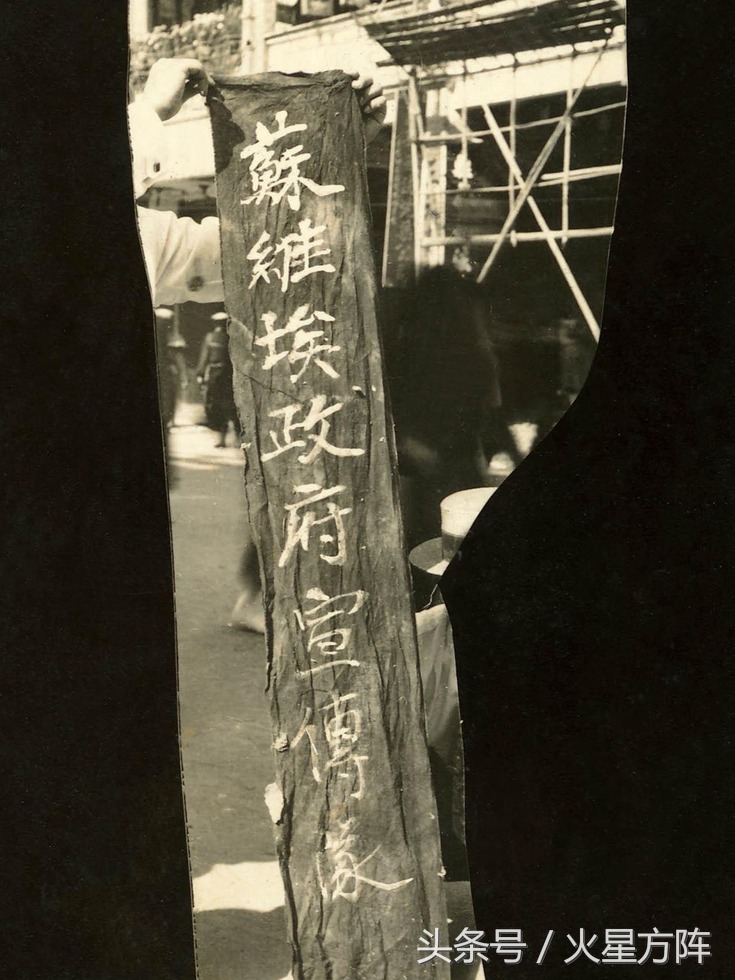 蘇維埃政府宣傳隊
头条号 / 火星方阵